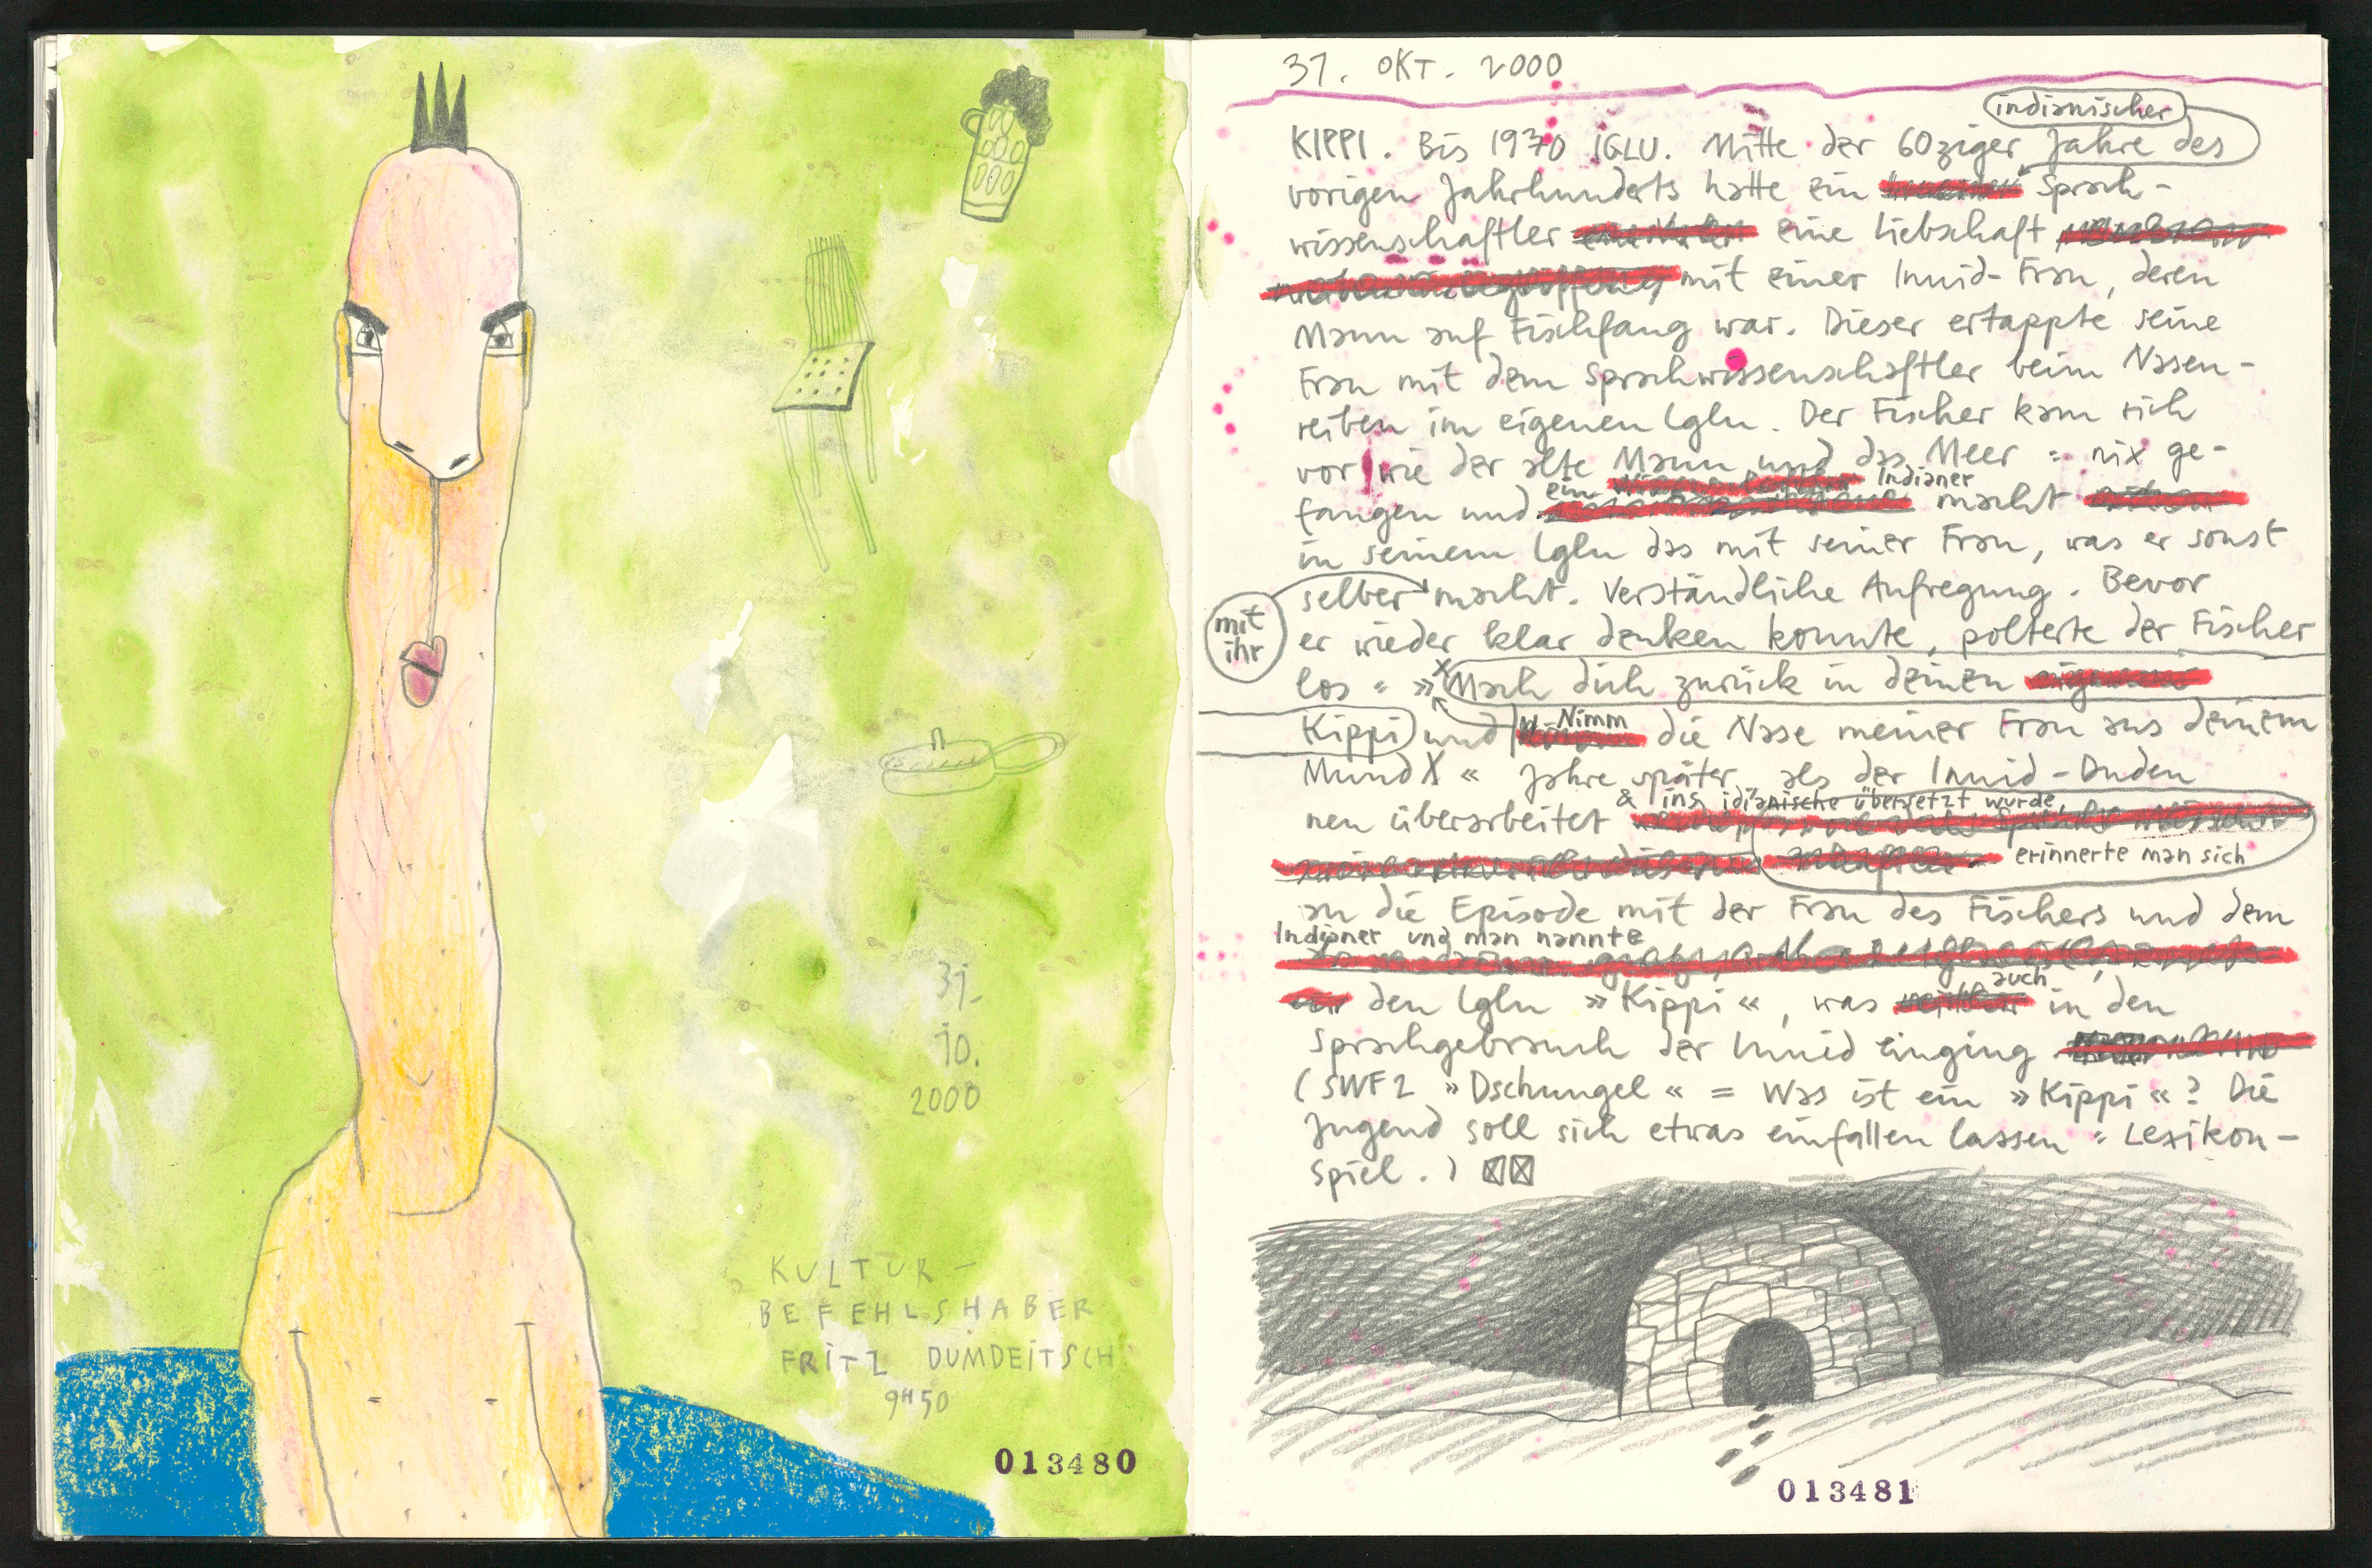 31.
10.
2000
KULTUR-
BEFEHLSHABER
FRITZ DUMDEITSCH
9H50
013480
31. OKT. 2000
indianischer
KIPPI. Bis 1970 IGLU. Mitte der 60ziger Jahre des
vorigen Jahrhunderts hatte ein Sprach-
wissenschaftler eine Liebschaft
mit einer Inuid-Frau, deren
Mann auf Fischfang war. Dieser ertappte seine
Frau mit dem Sprachwissenschaftler beim Nasen-
reiben im eigenen Iglu. Der Fischer kam sich
vor wie der alte Mann und das Meer: nix ge-
ein Indianer
fangen und macht
in seinem Iglu das mit seiner Frau, was er sonst
selber macht. Verständliche Aufregung. Bevor
mit
ihr
er wieder klar denken konnte, polterte der Fischer
los: »Mach dich zurück in deinen
Kippi und Nimm die Nase meiner Frau aus deinem
Mund X « Jahre später, als der Inuid-Duden
& ins idianische übersetzt wurde,
neu überarbeitet
erinnerte man sich
an die Episode mit der Frau des Fischers und dem
Indianer und man nannte
auch
den Iglu »Kippi«, was in den
Sprachgebrauch der Inuid einging
(SWF2 »Dschungel« = Was ist ein »Kippi«? Die
Jugend soll sich etwas einfallen lassen: Lexikon-
spiel.)
013481